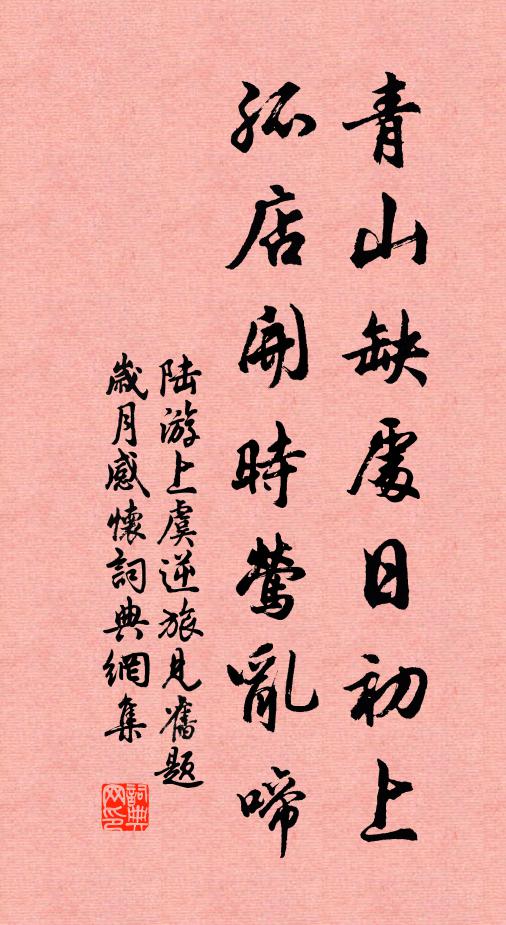 青山缺處日初上
孤店開時鶯亂啼
陸游上虞逆旅見舊題
歲月感懷詞典網集
詞典
网印